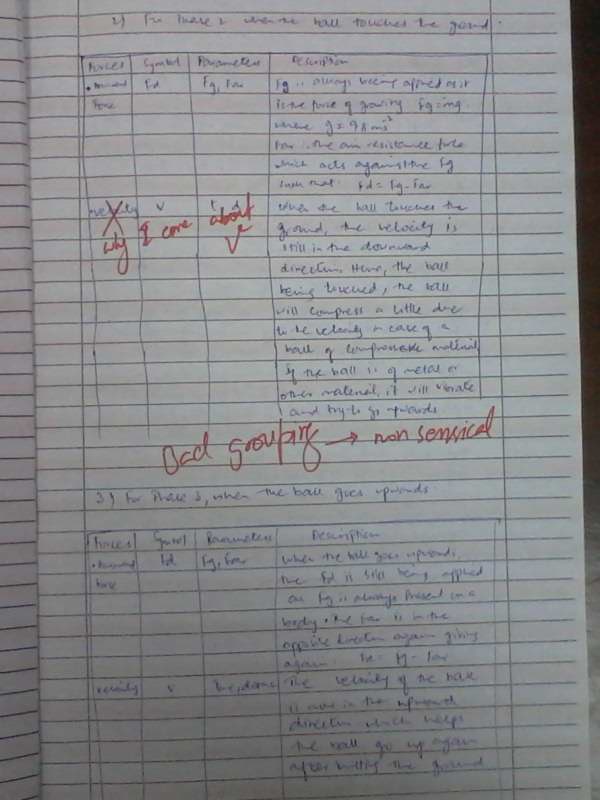 2) For Phase 2 when the ball touches the ground.
Forces Symbol Parameters Description
Downward Fd Fg, Far Fg is always being applied as it
Force is the force of gravity Fg=mg
where g = 9.8 ms²
Far is the air resistance force
which acts against the Fg
such that Fd = Fg - Far
velocity v t, d when the ball touches the
why I care about V
ground, the velocity is
still in the downward
direction. Here, the ball
being touched, the ball
will compress a little due
to the velocity in case of a
ball of compressable material
If the ball is of metal or
other material, it will vibrate
and try to go upwards
Bad grouping → non sensical
3) For Phase 3, when the ball goes upwards.
Forces Symbol Parameters Description
Downward Fd Fg, Far when the ball goes upwards,
force the Fd is still being applied
as Fg is always present in a
body. The Far is in the
opposite direction again giving
again Fd = Fg - Far
velocity v The velocity of the ball
is now in the upward
direction which helps
the ball go up again
after hitting the ground